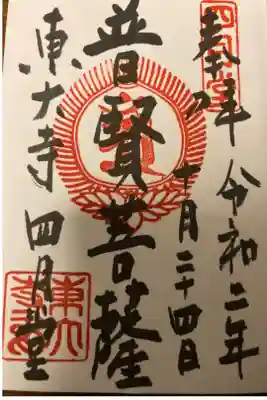 四月堂
奉拝 令和二年
十月二十四日
普賢菩薩
東大寺 四月堂